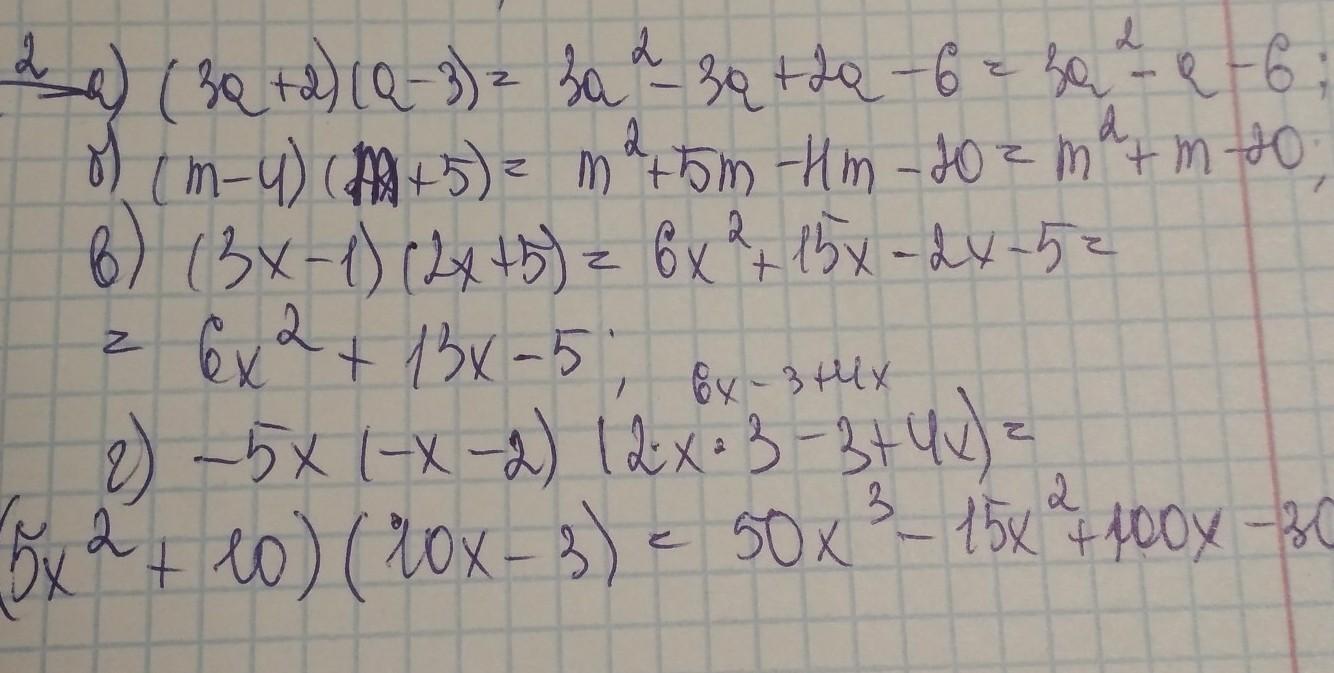 2 а) (3a+2)(a-3)= 3a²-3a+2a-6= 3a²-a-6;
б) (m-4)(m+5)= m²+5m-4m-20= m²+m-20;
в) (3x-1)(2x+5)= 6x²+15x-2x-5=
= 6x²+13x-5;
6x-3+4x
г) -5x(-x-2)(2·x·3-3+4x)=
(5x²+10)(10x-3)= 50x³-15x²+100x-30